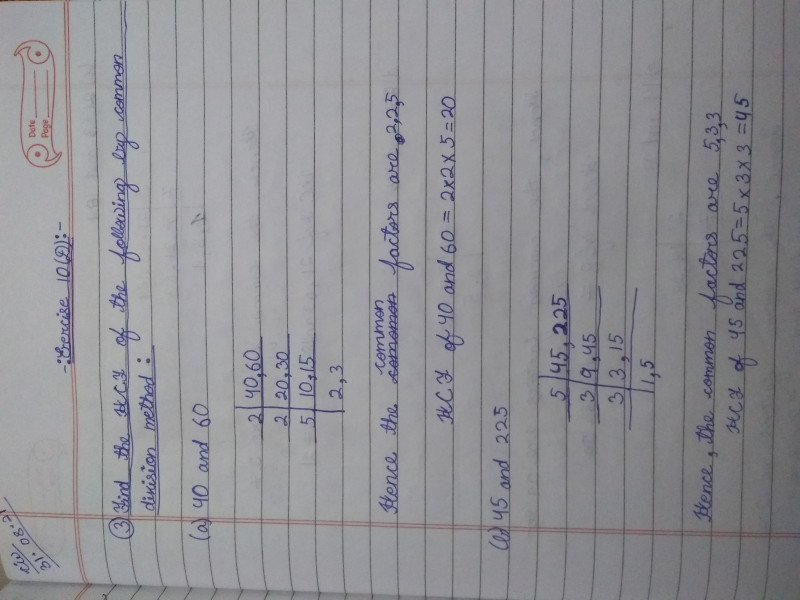 Date
Page
31.05.21
-:Exercise 10(D):-
③ Find the HCF of the following by common
division method :
(a) 40 and 60
2 | 40,60
2 | 20,30
5 | 10,15
2, 3
Hence the common factors are 2,2,5
HCF of 40 and 60 = 2x2x5=20
(b) 45 and 225
5 | 45,225
3 | 9,45
3 | 3,15
1,5
Hence, the common factors are 5,3,3
HCF of 45 and 225=5x3x3=45